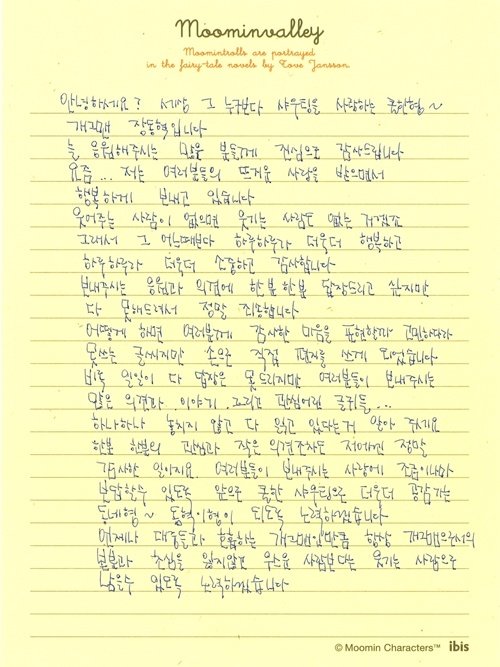 Moominvalley
Moomintrolls are portrayed
in the fairy-tale novels by Tove Jansson.
안녕하세요? 세상 그 누구보다 샤우팅을 사랑하는 훈현형~
개그맨 장동혁입니다
늘 응원해주시는 많은 분들께 진심으로 감사드립니다
요즘... 저는 여러분들의 뜨거운 사랑을 받으면서
행복하게 보내고 있습니다
웃어주는 사람이 없으면 웃기는 사람도 없는 거겠죠
그래서 그 어느때보다 하루하루가 더욱더 행복하고
하루하루가 더욱더 소중하고 감사합니다
보내주시는 응원과 의견에 한분한분 답장드리고 싶지만
다 못해드려서 정말 죄송합니다
어떻게 하면 여러분께 감사한 마음을 표현할까 고민하다가
못쓰는 글씨지만 손으로 직접 편지를 쓰게 되었습니다
비록 일일이 다 답장은 못드리지만 여러분들이 보내주시는
많은 의견과 이야기. 그리고 관심어린 글귀들...
하나하나 놓치지 않고 다 읽고 있다는거 알아 주세요
한분 한분의 관심과 작은 의견조차도 저에겐 정말
감사한 일이지요. 여러분들이 보내주시는 사랑에 조금이나마
보답할수 있도록 앞으로 훈훈한 샤우팅으로 더욱더 공감가는
동네형~ 동혁이형이 되도록 노력하겠습니다
언제나 대중들과 호흡하는 개그맨인만큼 항상 개그맨으로서의
본분과 초심을 잃지않고 우스운 사람보다는 웃기는 사람으로
남을수 있도록 노력하겠습니다
© Moomin Characters™ ibis